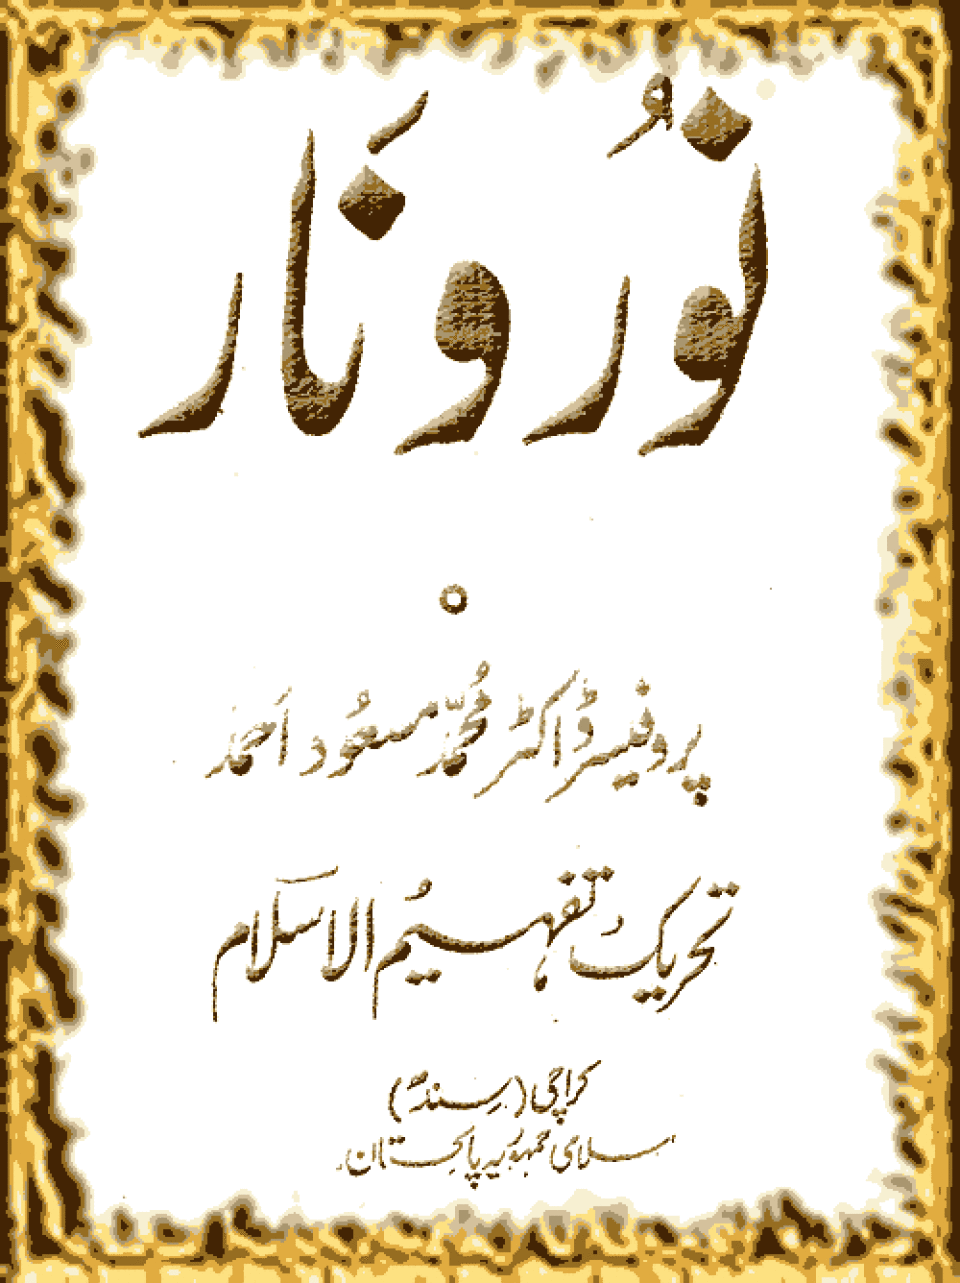 نُور و نَار
پروفیسر ڈاکٹر محمّد مسعُود احمد
تحریک تفہیمُ الاسلام
کراچی (سندھ)
اسلامی جمہوریہ پاکستان